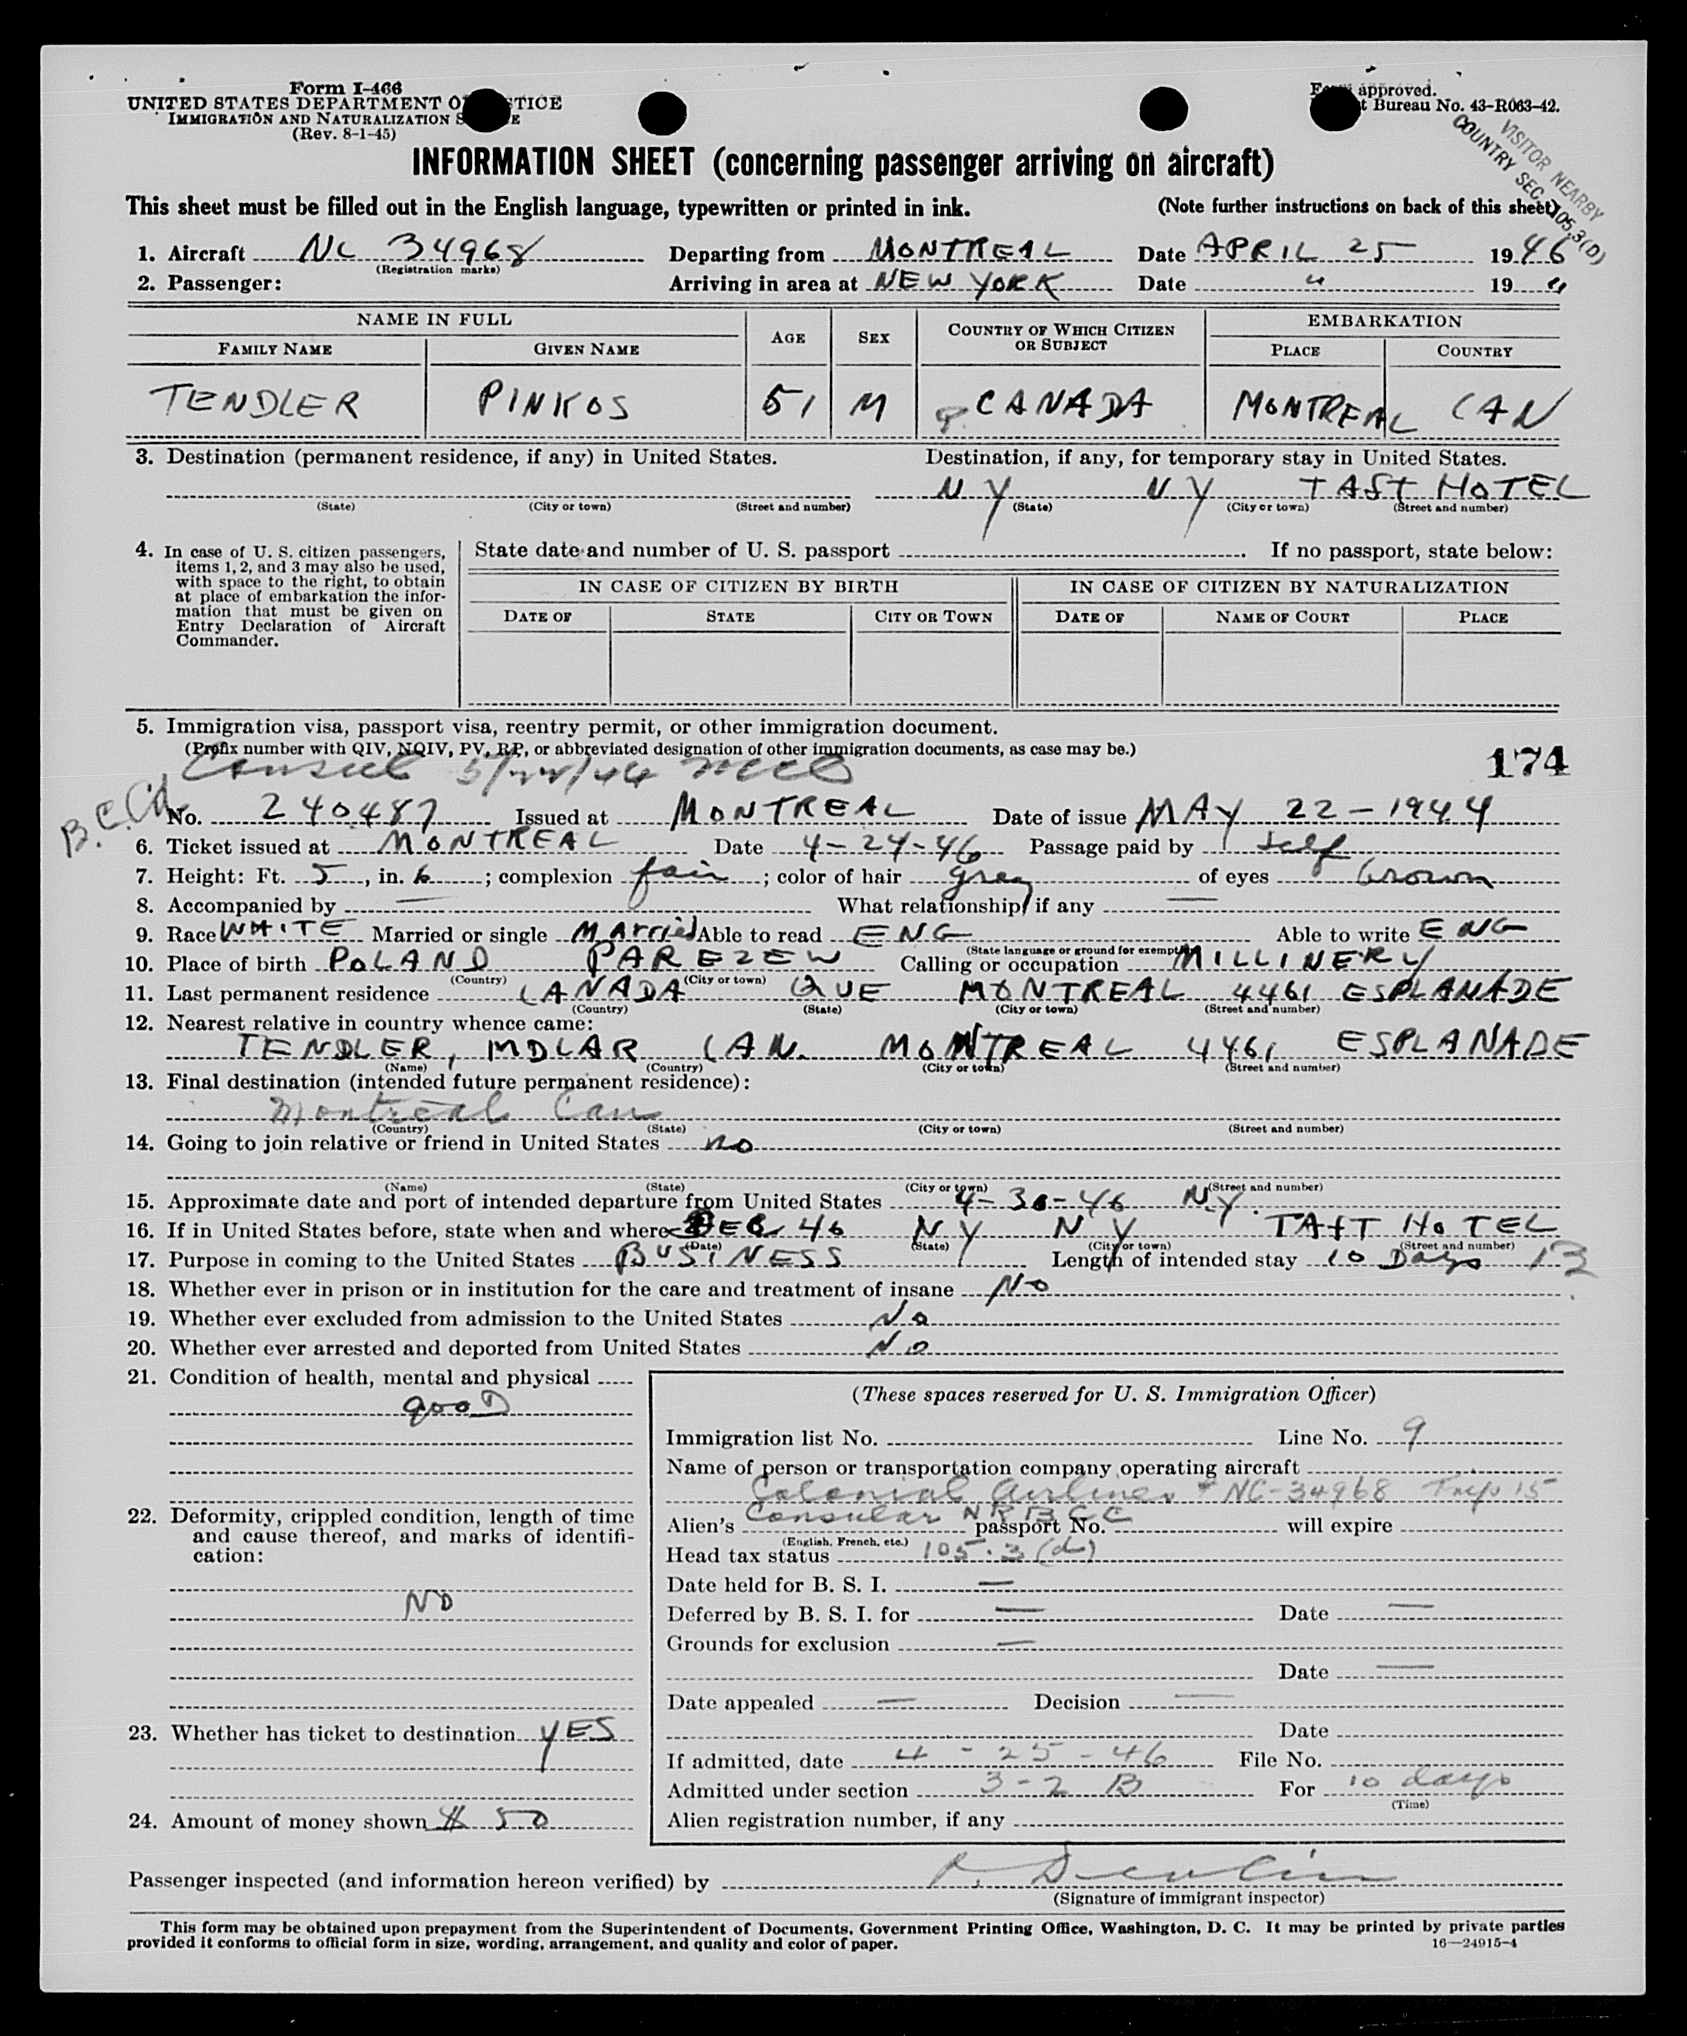 Form I-466
UNITED STATES DEPARTMENT OF JUSTICE
IMMIGRATION AND NATURALIZATION SERVICE
(Rev. 8-1-45)
Form approved.
Bureau No. 43-R063-42.
VISITOR NEARBY
COUNTRY SEC. 105.3(D)
INFORMATION SHEET (concerning passenger arriving on aircraft)
This sheet must be filled out in the English language, typewritten or printed in ink. (Note further instructions on back of this sheet)
1. Aircraft NC 34968 Departing from MONTREAL Date APRIL 25 1946
(Registration marks)
2. Passenger: Arriving in area at NEW YORK Date " 19 "
NAME IN FULL AGE SEX COUNTRY OF WHICH CITIZEN OR SUBJECT EMBARKATION
FAMILY NAME GIVEN NAME PLACE COUNTRY
TENDLER PINKOS 51 M CANADA MONTREAL CAN
3. Destination (permanent residence, if any) in United States. Destination, if any, for temporary stay in United States.
N Y N Y TAFT HOTEL
(State) (City or town) (Street and number) (State) (City or town) (Street and number)
4. In case of U. S. citizen passengers, items 1, 2, and 3 may also be used, with space to the right, to obtain at place of embarkation the information that must be given on Entry Declaration of Aircraft Commander.
State date and number of U. S. passport . If no passport, state below:
IN CASE OF CITIZEN BY BIRTH IN CASE OF CITIZEN BY NATURALIZATION
DATE OF STATE CITY OR TOWN DATE OF NAME OF COURT PLACE
5. Immigration visa, passport visa, reentry permit, or other immigration document.
(Prefix number with QIV, NQIV, PV, RP, or abbreviated designation of other immigration documents, as case may be.)
174
Consul 5/22/44
B.C.Cd.
No. 240487 Issued at MONTREAL Date of issue MAY 22-1944
6. Ticket issued at MONTREAL Date 4-24-46 Passage paid by self
7. Height: Ft. 5, in. 6; complexion fair; color of hair grey of eyes brown
8. Accompanied by — What relationship, if any —
9. Race WHITE Married or single Married Able to read ENG Able to write ENG
(State language or ground for exemption)
10. Place of birth POLAND PAREZEW Calling or occupation MILLINERY
(Country) (City or town)
11. Last permanent residence CANADA QUE MONTREAL 4461 ESPLANADE
(Country) (State) (City or town) (Street and number)
12. Nearest relative in country whence came:
TENDLER, MDLAR CAN. MONTREAL 4461 ESPLANADE
(Name) (Country) (City or town) (Street and number)
13. Final destination (intended future permanent residence):
Montreal Can
(Country) (State) (City or town) (Street and number)
14. Going to join relative or friend in United States no
(Name) (State) (City or town) (Street and number)
15. Approximate date and port of intended departure from United States 4-30-46 N.Y.
16. If in United States before, state when and where 46 N Y N Y TAFT HOTEL
(Date) (State) (City or town) (Street and number)
17. Purpose in coming to the United States BUSINESS Length of intended stay 10 Days 13
18. Whether ever in prison or in institution for the care and treatment of insane NO
19. Whether ever excluded from admission to the United States NO
20. Whether ever arrested and deported from United States NO
21. Condition of health, mental and physical
gooD
22. Deformity, crippled condition, length of time and cause thereof, and marks of identification:
NO
23. Whether has ticket to destination YES
24. Amount of money shown $ 50
(These spaces reserved for U. S. Immigration Officer)
Immigration list No. Line No. 9
Name of person or transportation company operating aircraft
Colonial Airlines NC-34968 Trip 15
Alien's Consular NRBCC passport No. will expire
(English, French, etc.)
Head tax status 105.3(d)
Date held for B. S. I. —
Deferred by B. S. I. for — Date —
Grounds for exclusion —
Date —
Date appealed — Decision —
Date
If admitted, date 4-25-46 File No.
Admitted under section 3-2 B For 10 days
(Time)
Alien registration number, if any
Passenger inspected (and information hereon verified) by
(Signature of immigrant inspector)
This form may be obtained upon prepayment from the Superintendent of Documents, Government Printing Office, Washington, D. C. It may be printed by private parties
provided it conforms to official form in size, wording, arrangement, and quality and color of paper.
16—24915-4